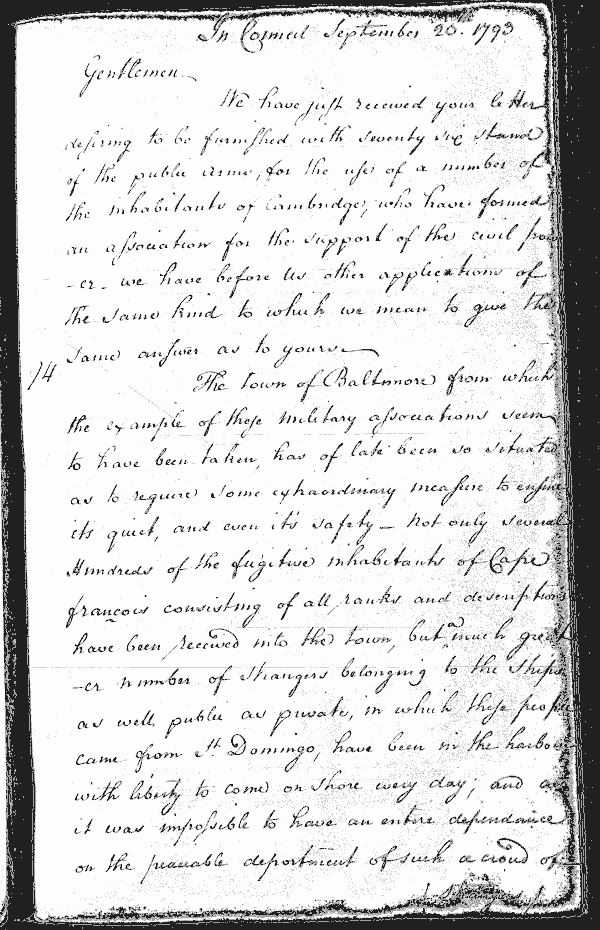 In Council September 20th. 1793
Gentlemen
We have just received your letter
desiring to be furnished with seventy six stand
of the public arms, for the use of a number of
the inhabitants of Cambridge, who have formed
an association for the support of the civil pow
-er - we have before us other applications of
the same kind to which we mean to give the
same answer as to yours.
74
The town of Baltimore from which
the example of these military associations seem
to have been taken, has of late been so situated
as to require some extraordinary measure to ensure
its quiet, and even it's safety - Not only several
Hundreds of the fugitive inhabitants of Cape
françois consisting of all ranks and descriptions
have been received into the town, but a much great
-er number of strangers belonging to the ships
as well public as private, in which these people
came from St. Domingo, have been in the harbour
with liberty to come on shore every day; and as
it was impossible to have an entire dependance
on the peaceable deportment of such a croud of